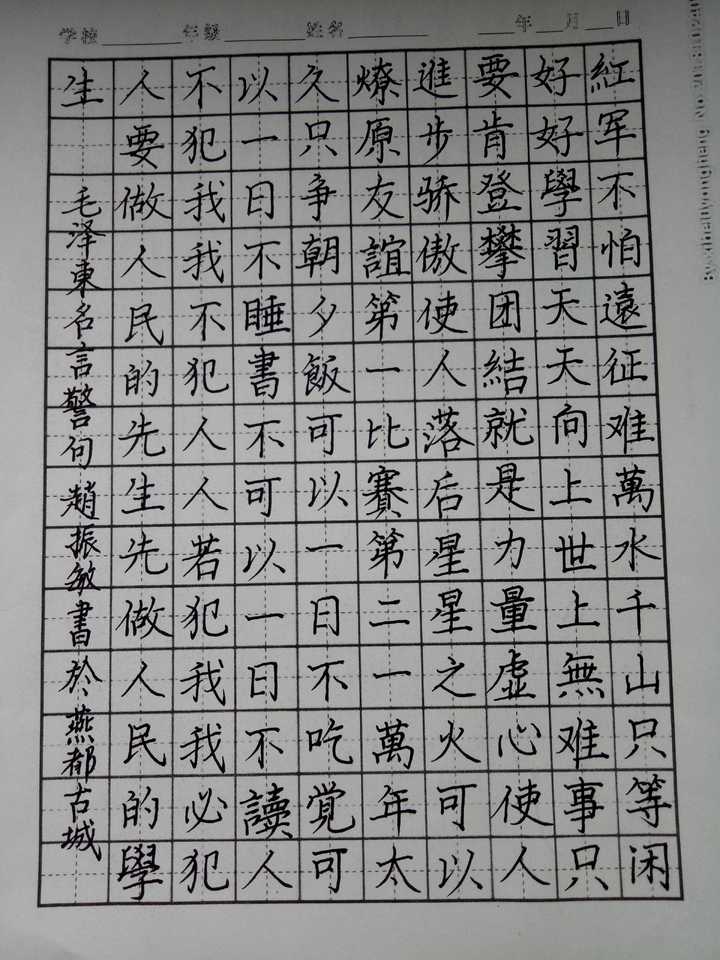 学校________年级________姓名________ ____年___月___日
紅军不怕遠征难萬水千山只等闲
好好學習天天向上世上無难事只
要肯登攀团結就是力量虚心使人
進步骄傲使人落后星星之火可以
燎原友誼第一比賽第二一萬年太
久只争朝夕飯可以一日不吃覚可
以一日不睡書不可以一日不讀人
不犯我我不犯人人若犯我我必犯
人要做人民的先生先做人民的學
生
毛泽東名言警句趙振敏書於燕都古城